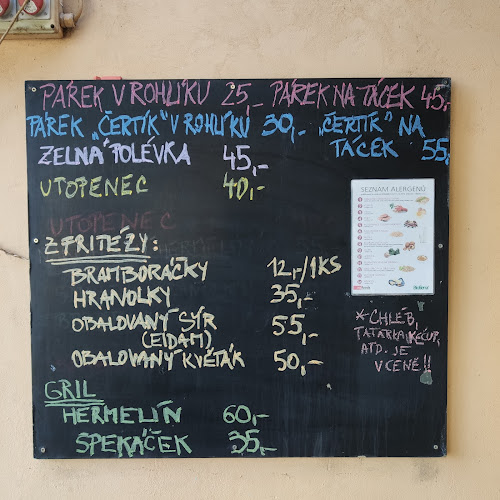 PÁREK V ROHLÍKU 25,- PÁREK NA TÁCEK 45,-
PÁREK „ČERTÍK“ V ROHLÍKU 30,- „ČERTÍK“ NA
TÁCEK 55,-
ZELNÁ POLÉVKA 45,-
UTOPENEC 40,-
UTOPENEC
Z FRITÉZY:
BRAMBORÁČKY 12,-/1KS
HRANOLKY 35,-
OBALOVANÝ SÝR 55,-
(EIDAM)
OBALOVANÝ KVĚTÁK 50,-
GRIL
HERMELÍN 60,-
ŠPEKÁČEK 35,-
SEZNAM ALERGENŮ
*CHLÉB,
TATARKA, KEČUP,
ATD. JE
V CENĚ!!